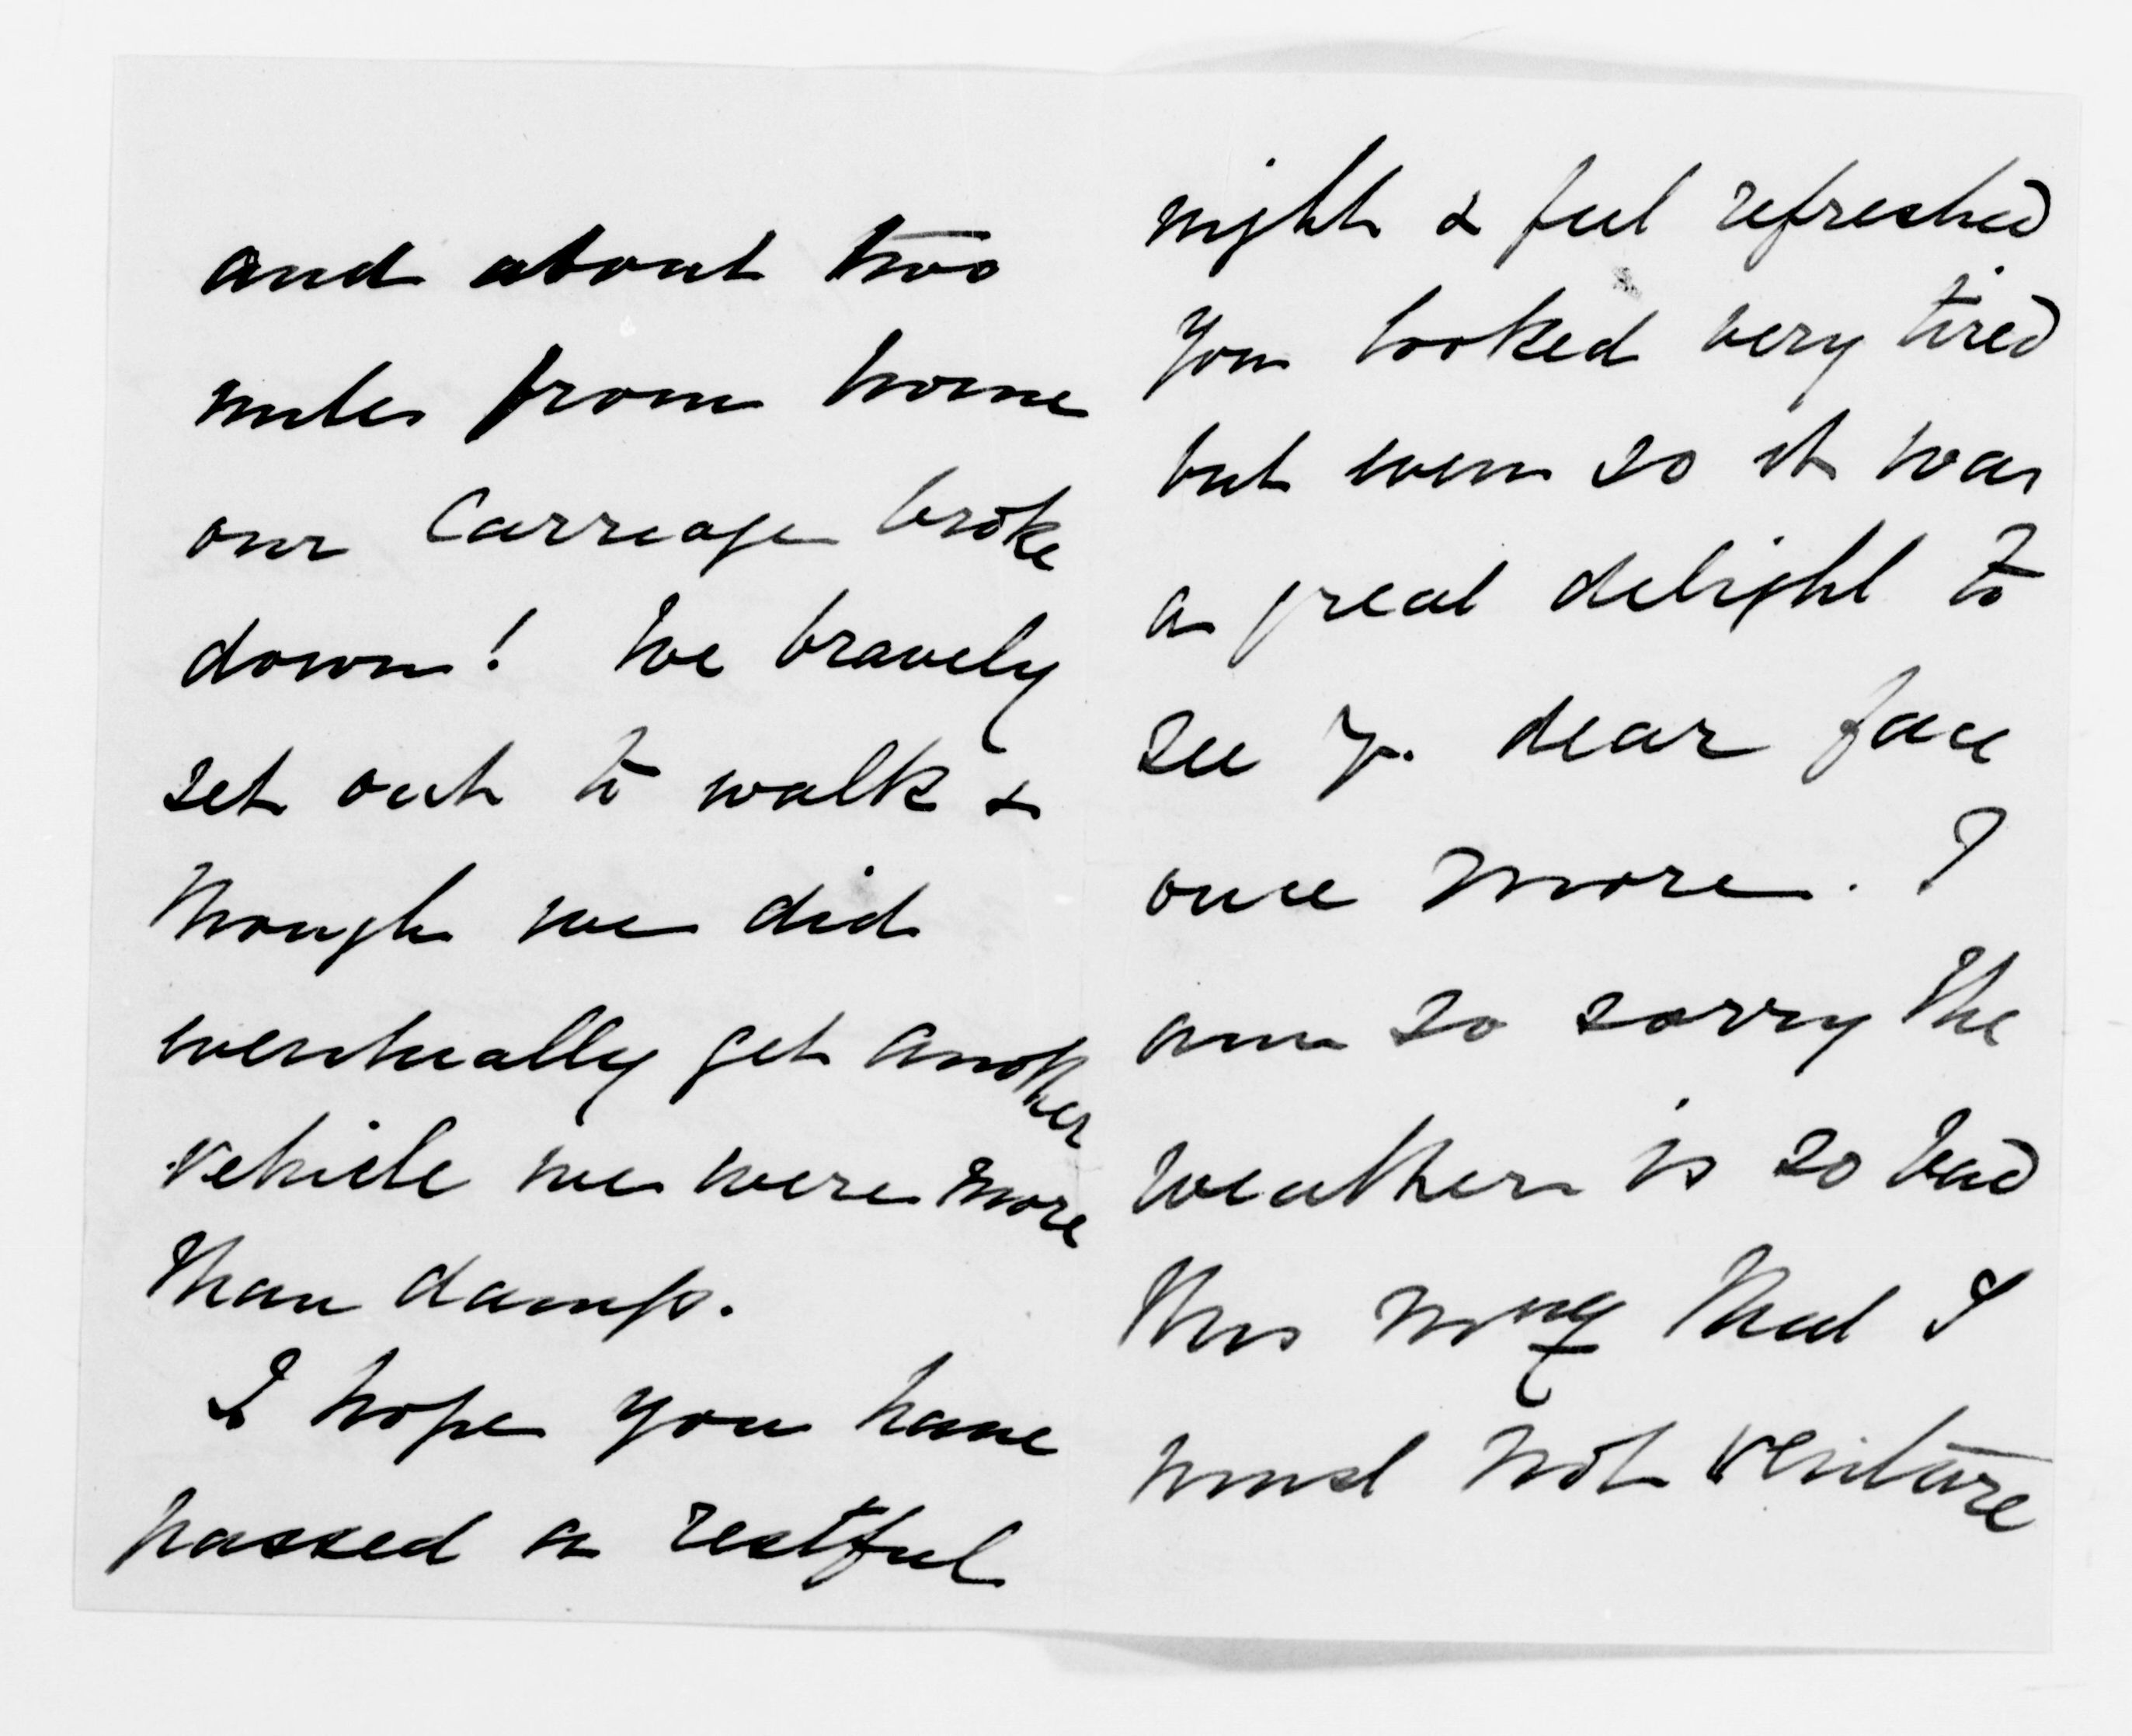 and about two
miles from home
our Carriage broke
down! We bravely
set out to walk &
though we did
eventually get another
vehicle we were more
than damp.
I hope you have
passed a restful
night & feel refreshed
you looked very tired
but even so it was
a great delight to
see yr. dear face
once more. I
am so sorry the
weather is so bad
this mng that I
must not venture